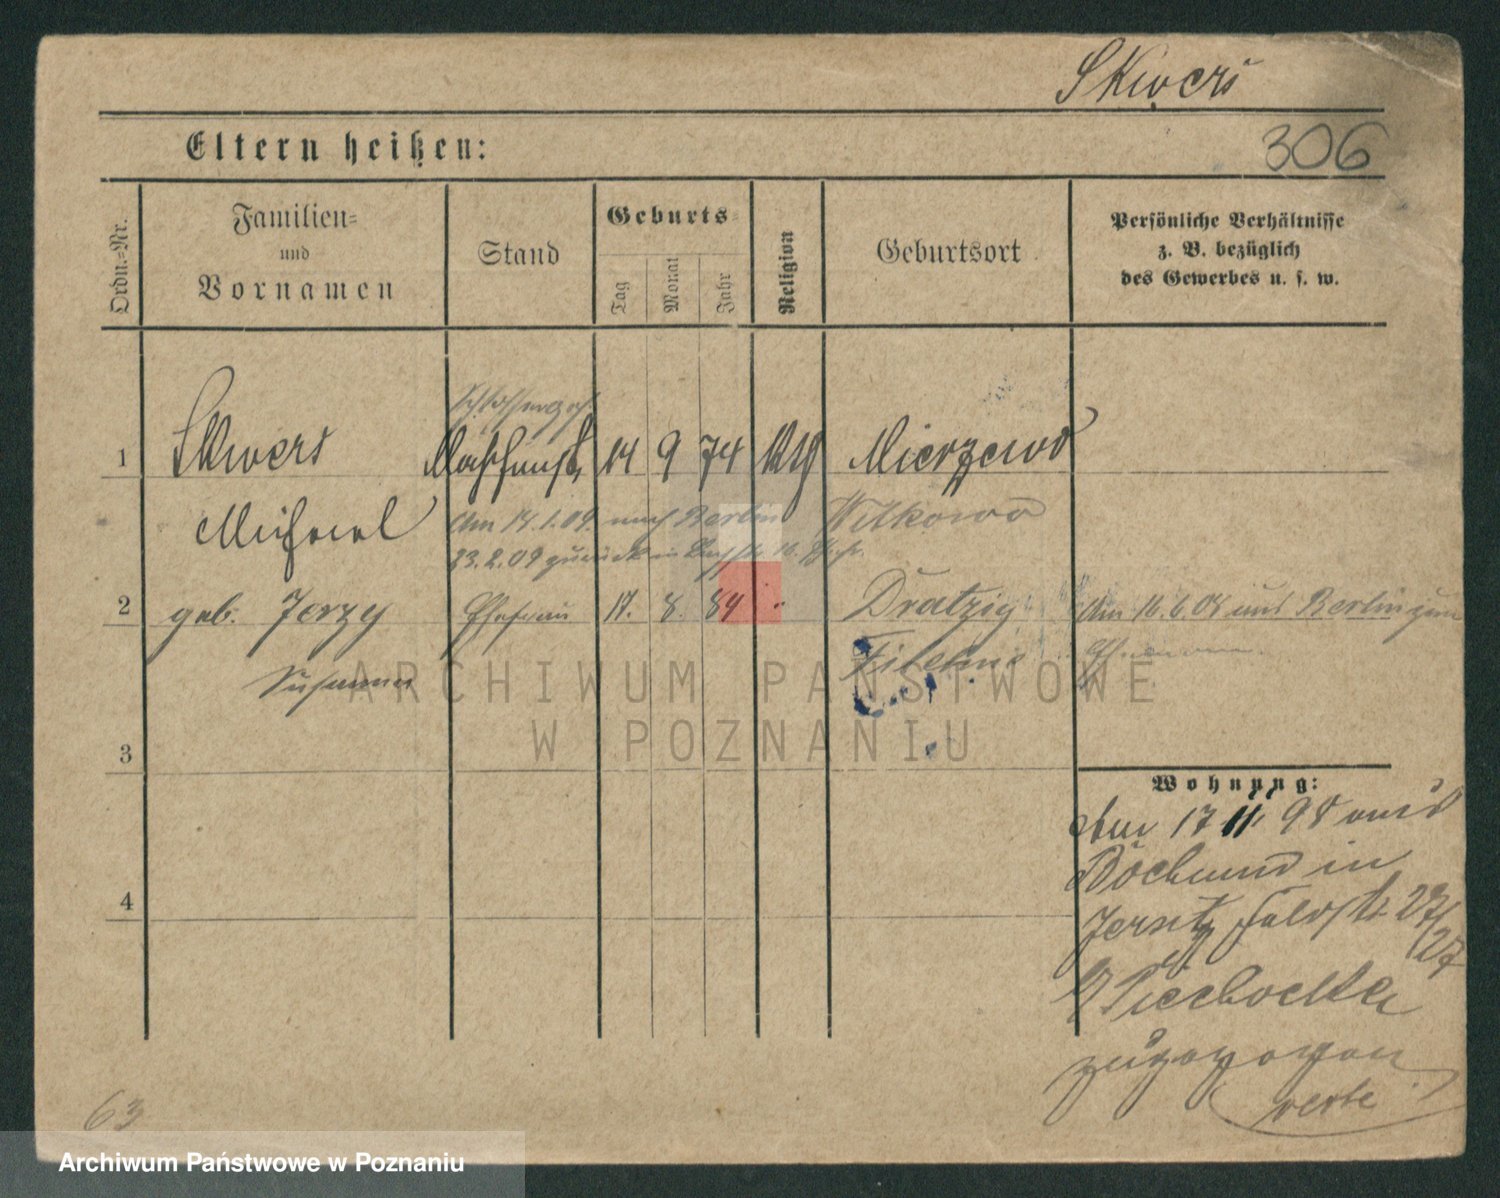 Skwers
Eltern heißen:
306
Ordn.-Nr.
Familien-
und
Vornamen
Stand
Geburts-
Tag
Monat
Jahr
Religion
Geburtsort
Persönliche Verhältnisse
z. B. bezüglich
des Gewerbes u. s. w.
1
Skwers
14 9 74 kth
Mierzewo
Michael
Am 14.1.09. nach Berlin
Witkowo
23.2.09 zurück in
2
geb. Jerzy
Ehefrau
17. 8. 84 "
Dratzig
Am 16.6.08 aus Berlin zum
Susanna
Filehne
Ehemann.
ARCHIWUM PAŃSTWOWE
W POZNANIU
3
Wohnung:
Am 17 11 98 aus
Bochum in
4
Jersitz Feldstr. 27/27
b/ Piechocka
zugezogen
verte
63
Archiwum Państwowe w Poznaniu